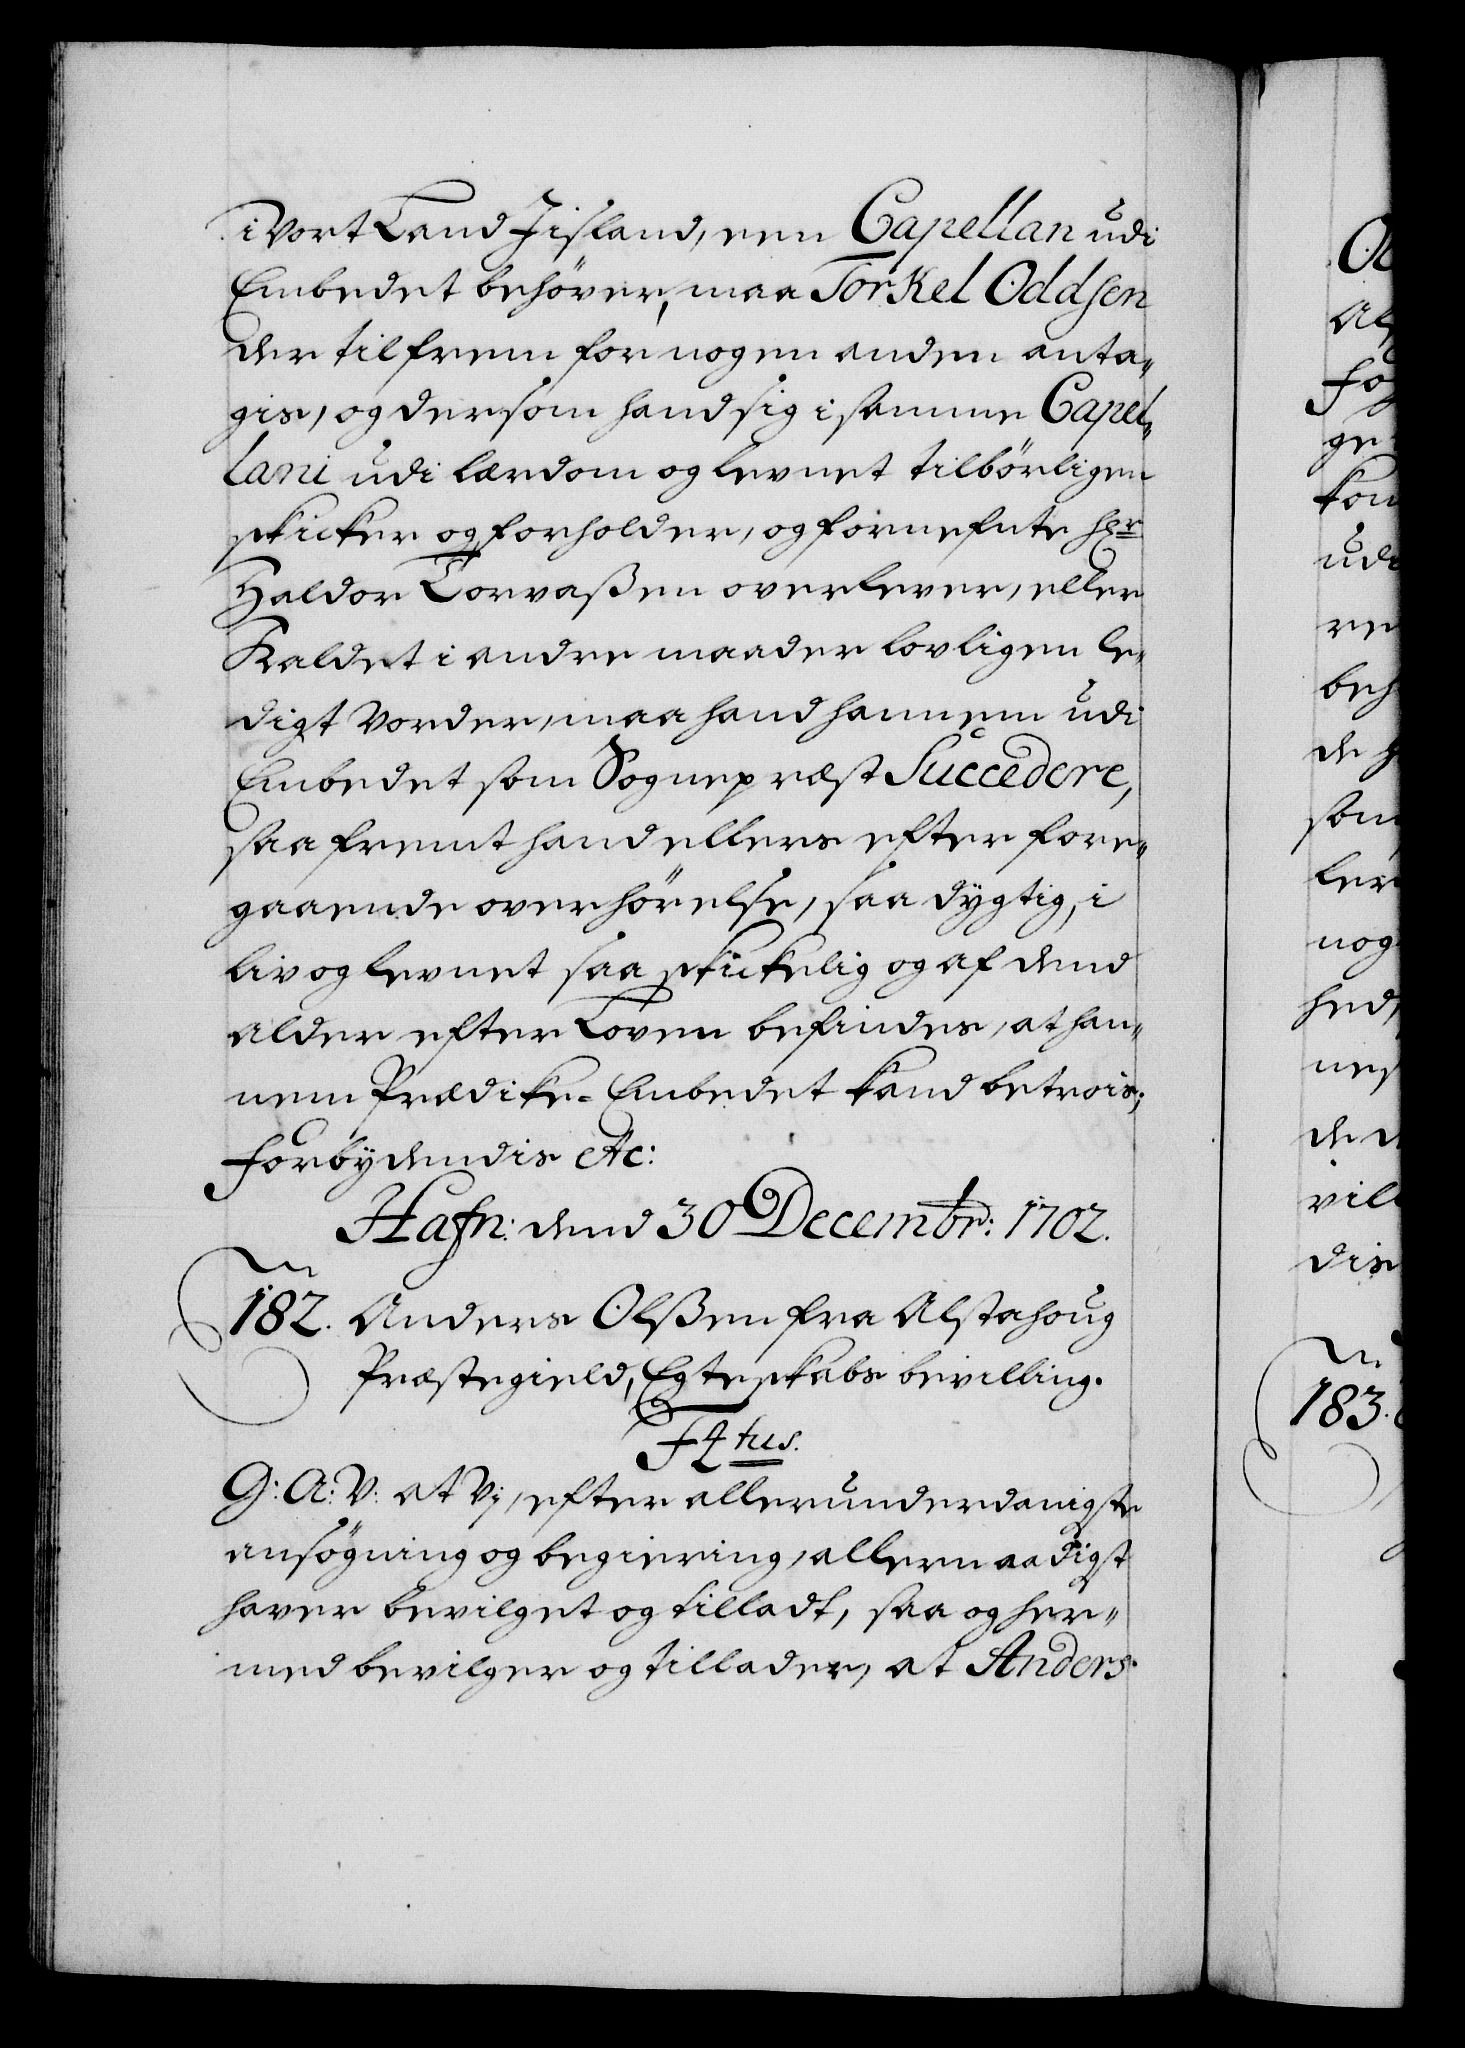 i Vort Land Jisland, een Capellan udi
Embedet behöver, maa Torkel Oddsen
der til frem for nogen anden anta-
gis, og dersom hand sig i samme Capel-
lani udi lærdom og levnet tilbörligen
skicker og forholder, og förnefnte Hr
Haldor Torvaßen overlever, eller
Kaldet i andre maader lovligen le-
digt Vorder, maa hand hannem udi
Embedet som Sognepræst Succedere,
saa fremt hand ellers efter fore-
gaaende overhörelse, saa dygtig, i
liv og levnet saa skickelig og af dend
alder efter Loven befindes, at han-
nem Prædike-Embedet kand betrois;
forbydendis etc:
Hafn: dend 30 Decembr: 1702.
182. Anders Olßen fra Alstahoug
Præstegield, Egteskabs bevilling.
F4tus.
G: A: V: at Vi, efter allerunderdanigste
ansögning og begiering, allernaadigst
haver bevilget og tilladt, saa og her-
med bevilger og tillader, at Anders
183.